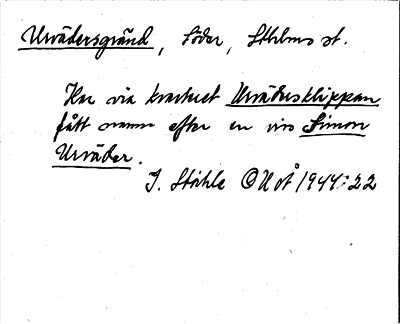 Urvädersgränd, Söder, Sthlms st.
Har via kvarteret Urväders klippan
fått namn efter en viss Simon
Urväder.
I. Ståhle OUoÅ 1944:22